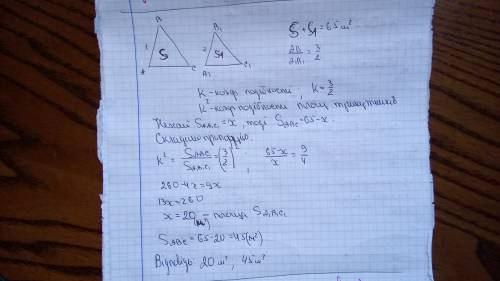 B B₁
S + S₁ = 65 м²
3 S 2 S₁
AB/A₁B₁ = 3/2
A C A₁ C₁
K - коеф подібности, K = 3/2
K² - коеф подібности площ трикутників
Нехай S A₁B₁C₁ = x, тоді S ABC = 65-x.
Складемо пропорцію
K² = S ABC / S A₁B₁C₁ = (3/2)², 65-x / x = 9/4
260-4x=9x
13x=260
x = 20 (м²) - площа S A₁B₁C₁
S ABC = 65-20 = 45 (м²)
Відповідь: 20 м², 45 м²